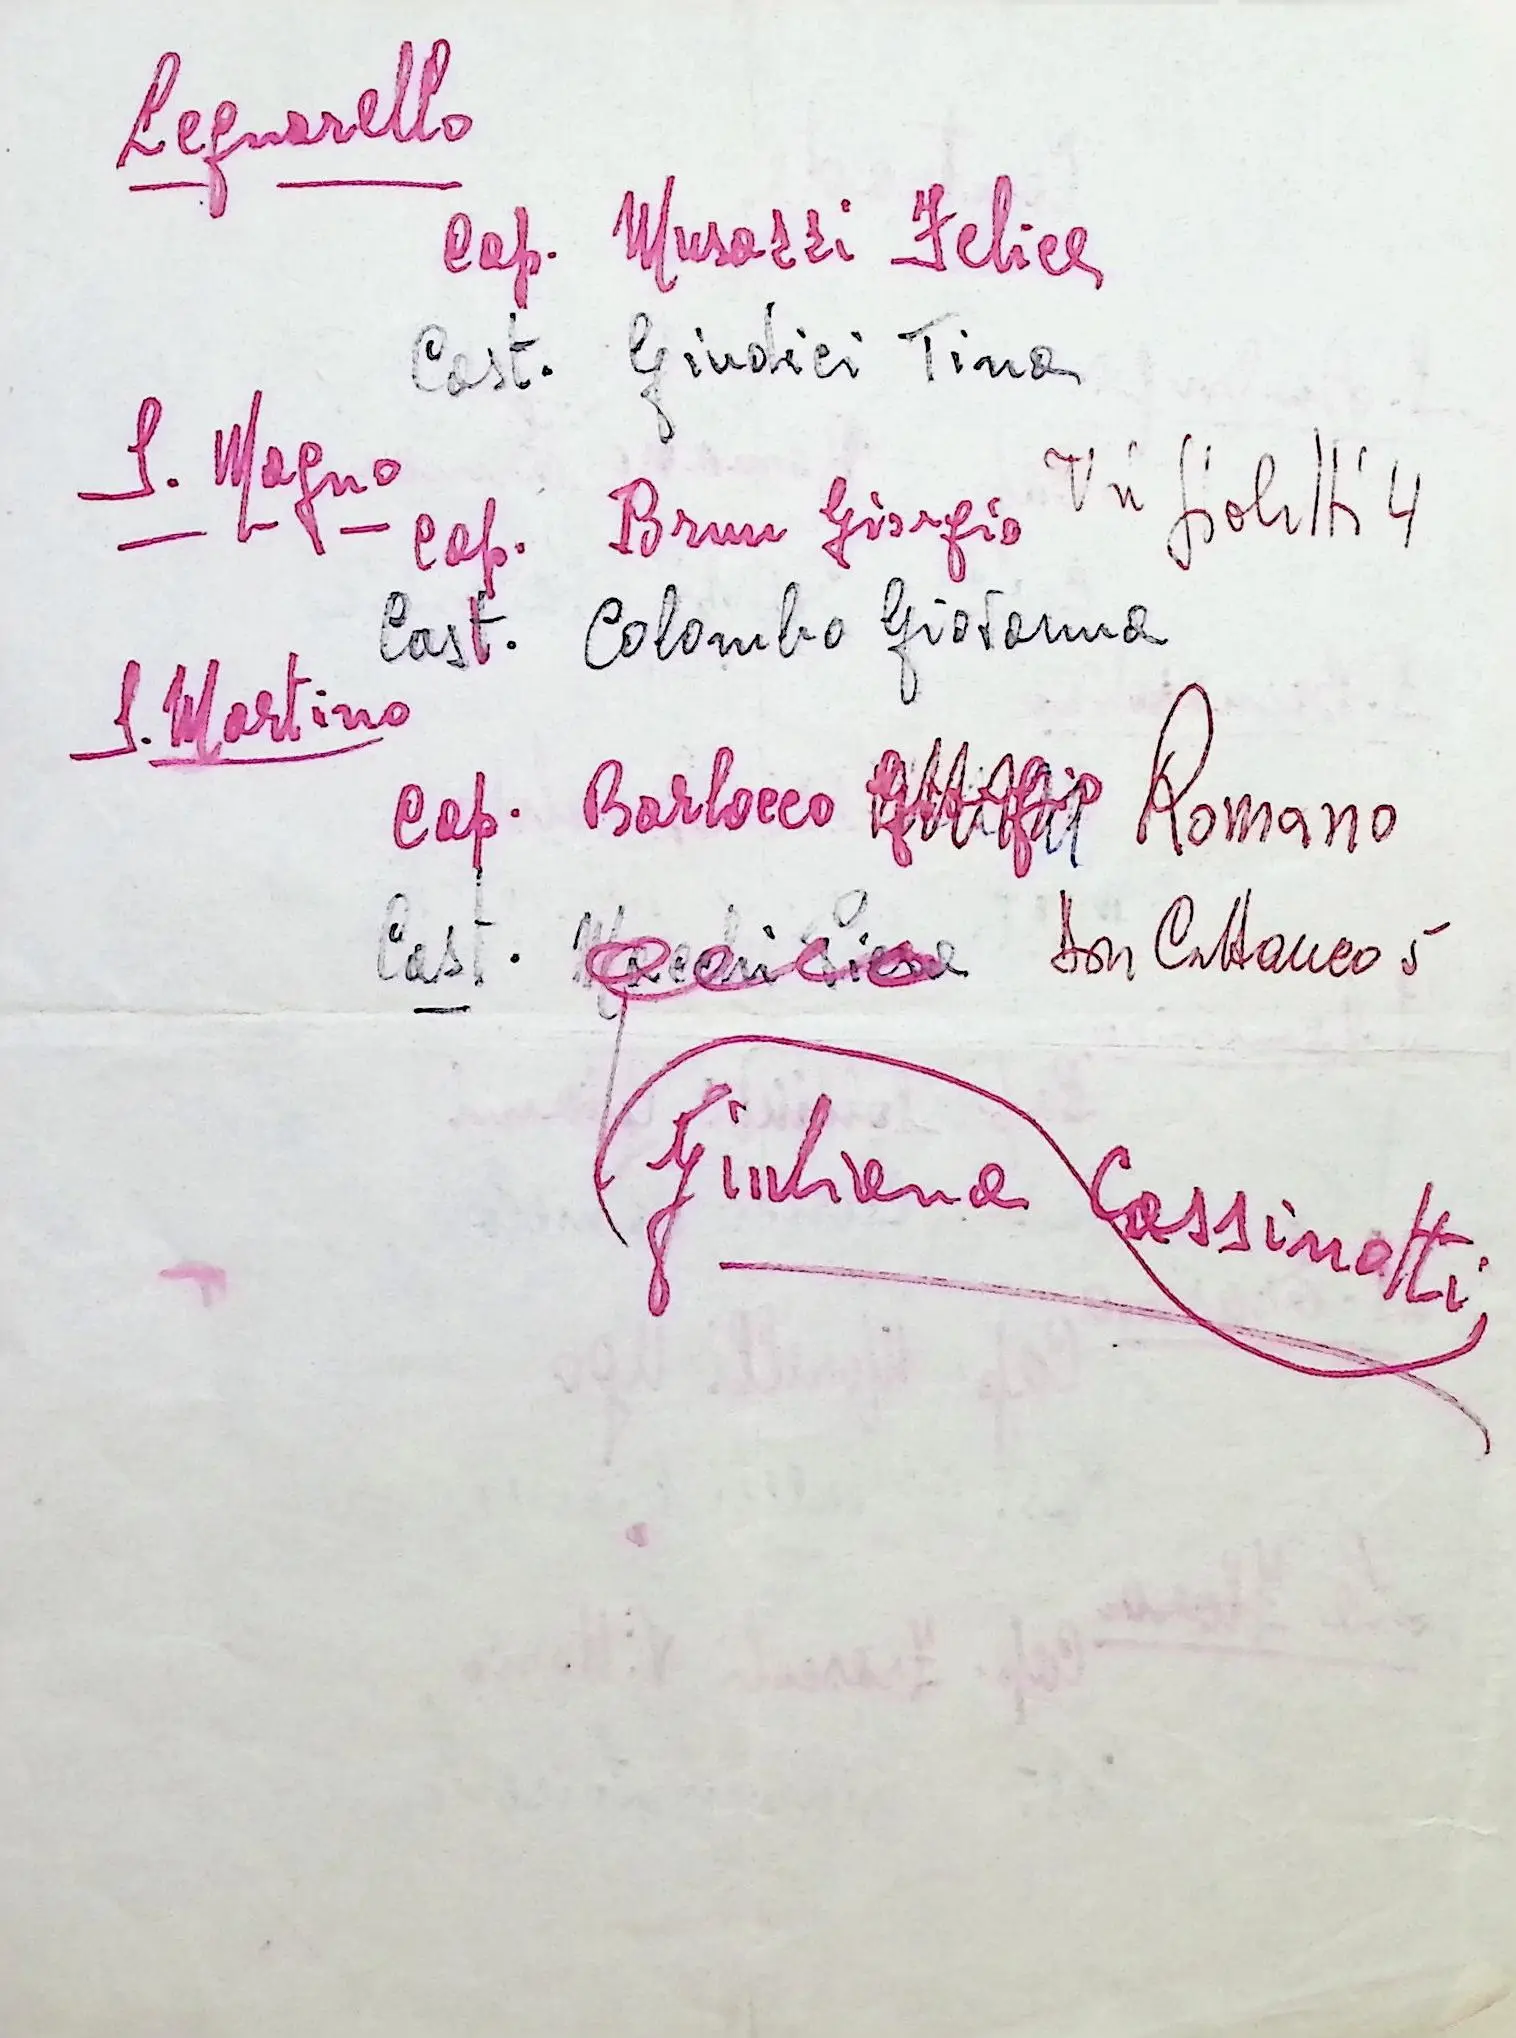 Legnarello
Cap. Musazzi Felice
Cast. Giudici Tina
S. Magno
Cap. Brun Giorgio Via Gioletti 4
Cast. Colombo Giovanna
S. Martino
Cap. Barlocco Romano
Cast. Don Cattaneo 5
Giuliana Cassinotti